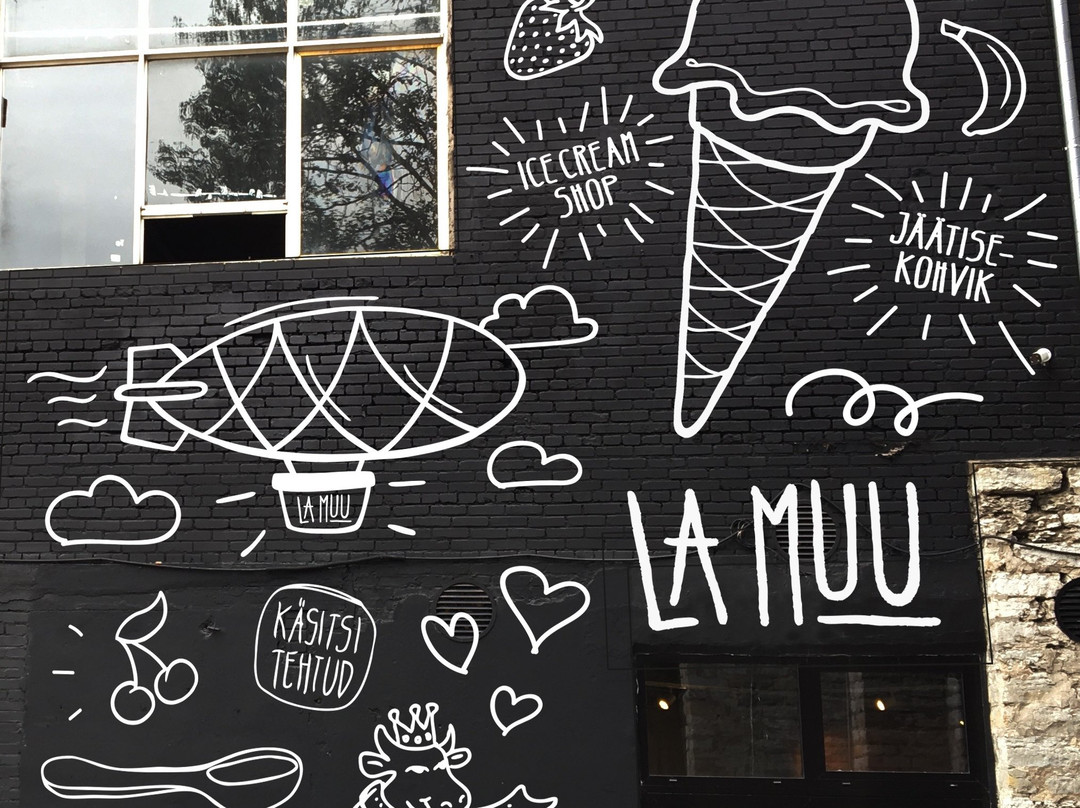 ICE CREAM
SHOP
JÄÄTISE-
KOHVIK
LA MUU
LA MUU
KÄSITSI
TEHTUD